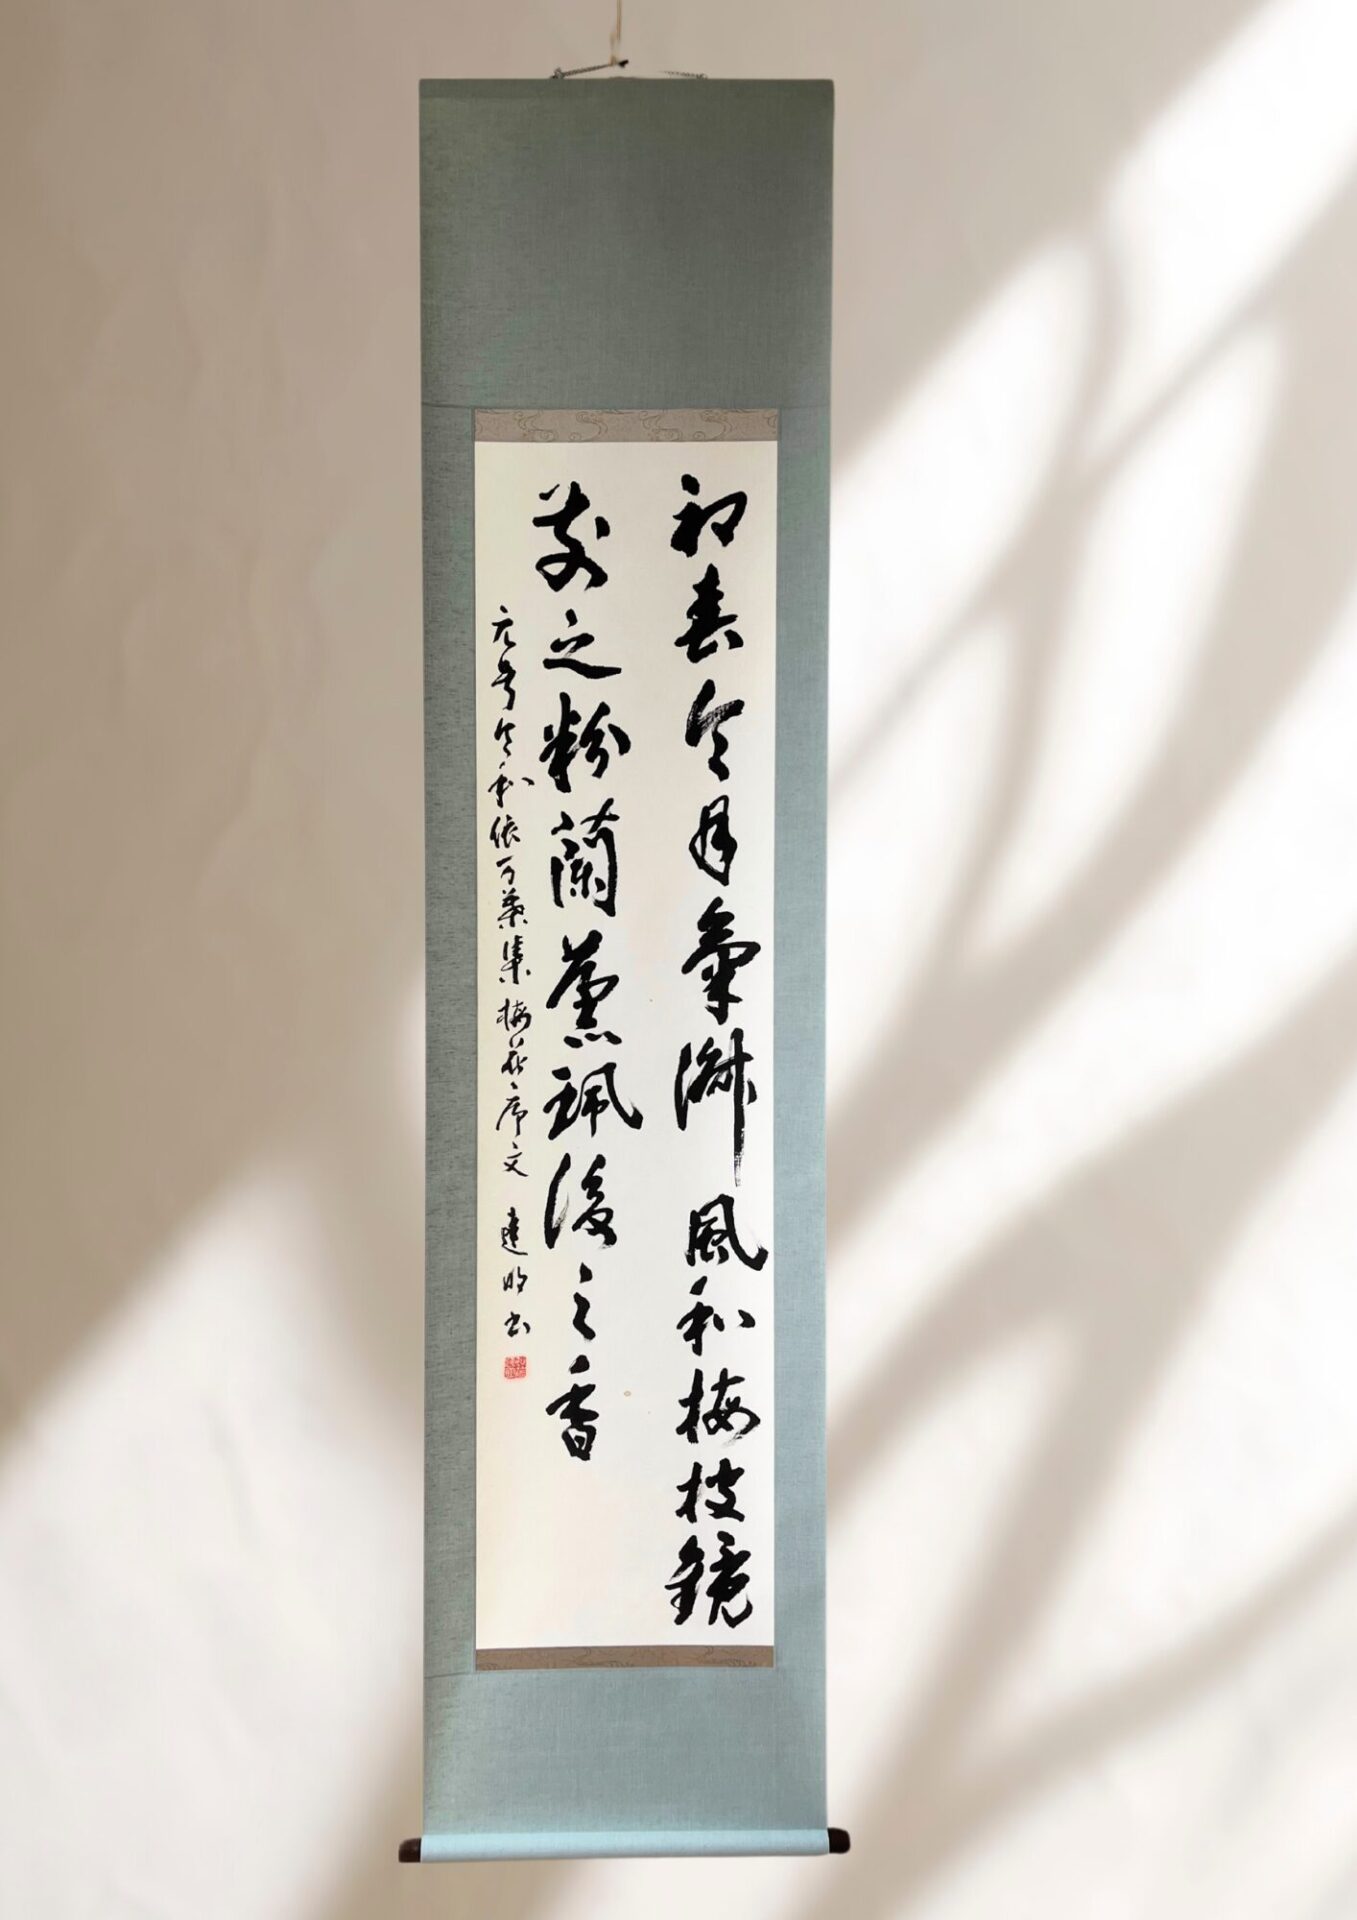 初春令月氣淑風和梅枝鏡
前之粉蘭薫珮後之香
元号令和依万葉集梅花序文 建明書